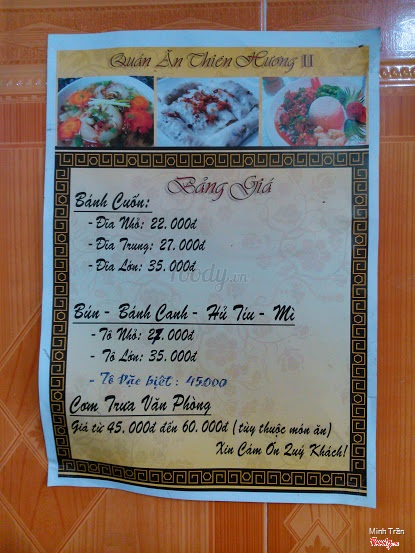 Quán Ăn Thiên Hương II
Bảng Giá
Bánh Cuốn:
- Đĩa Nhỏ: 22.000đ
- Đĩa Trung: 27.000đ
- Đĩa Lớn: 35.000đ
foody.vn
Bún - Bánh Canh - Hủ Tíu - Mì
- Tô Nhỏ: 27.000đ
- Tô Lớn: 35.000đ
- Tô Đặc biệt: 45000
Cơm Trưa Văn Phòng
Giá từ 45.000đ đến 60.000đ (tùy thuộc món ăn)
Xin Cảm Ơn Quý Khách!
Minh Trần
foody.vn